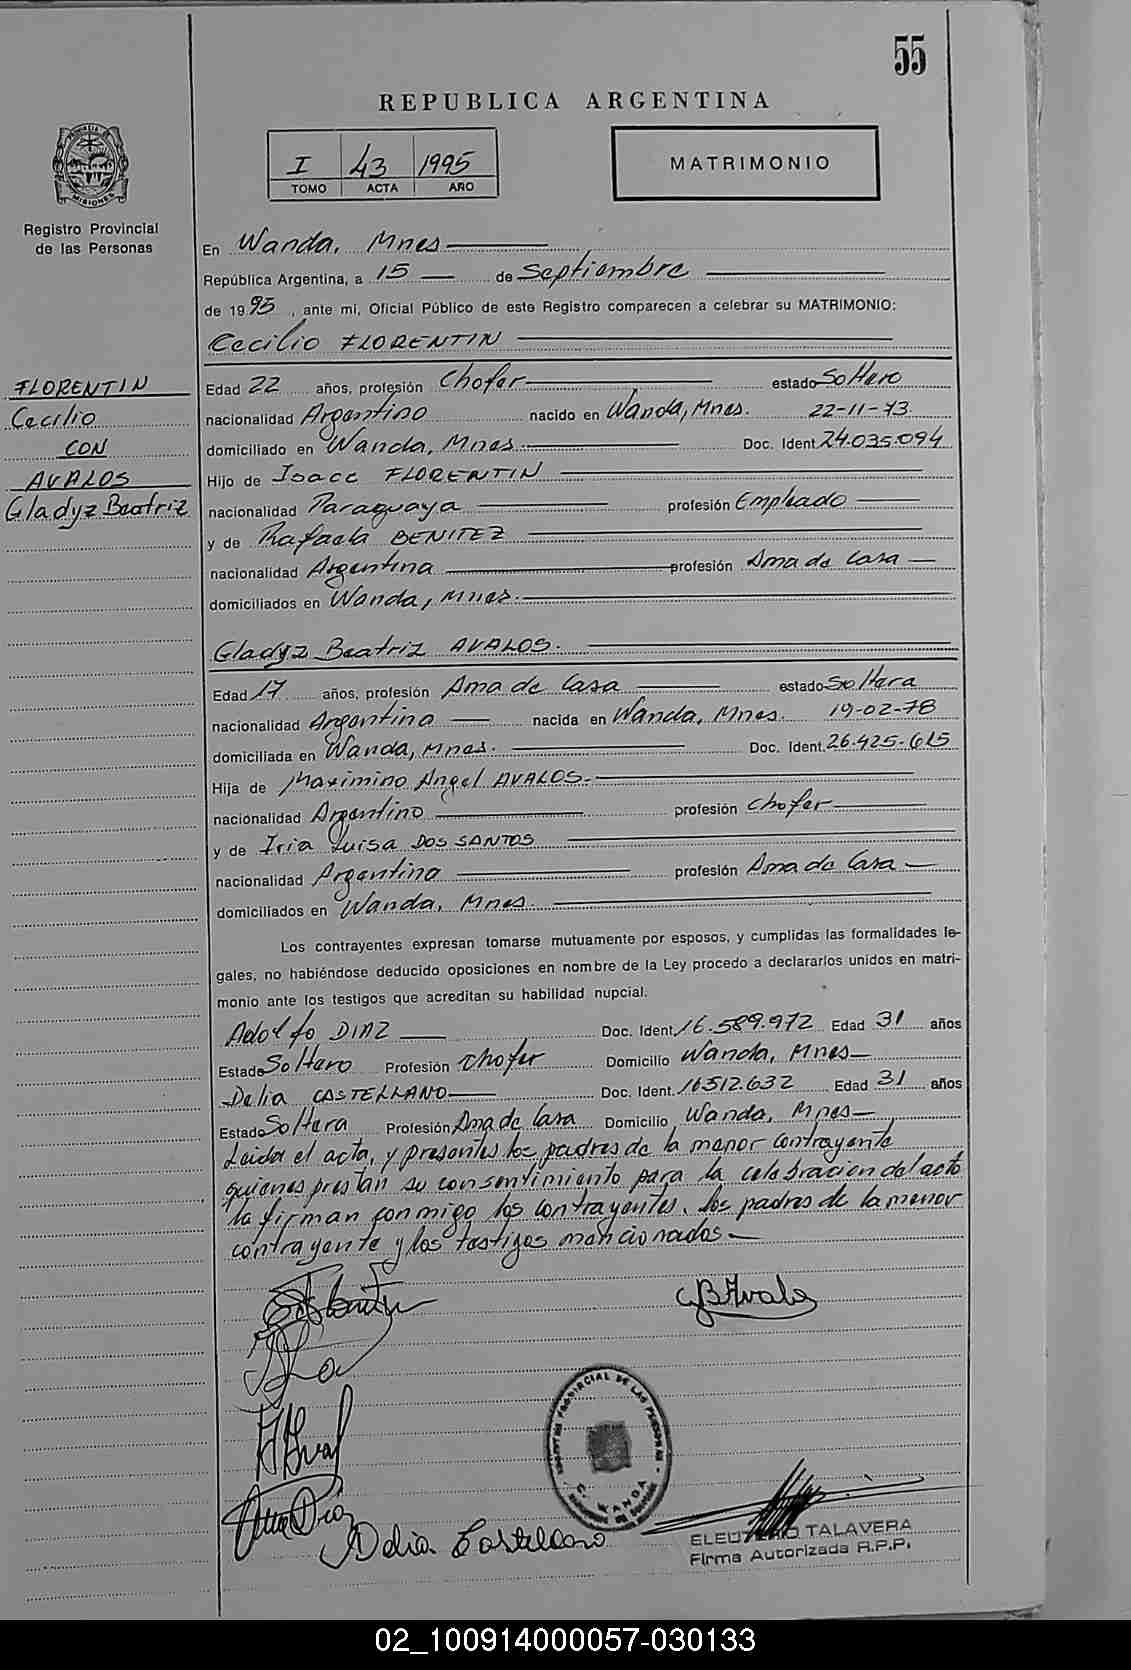 55
REPUBLICA ARGENTINA
I 43 1995
TOMO ACTA AÑO
MATRIMONIO
PROVINCIA DE MISIONES
Registro Provincial
de las Personas
En Wanda, Mnes
República Argentina, a 15 de Septiembre
de 1995, ante mi, Oficial Público de este Registro comparecen a celebrar su MATRIMONIO:
Cecilio FLORENTIN
FLORENTIN
Cecilio
CON
AVALOS
Gladyz Beatriz
Edad 22 años, profesión Chofer estado Soltero
nacionalidad Argentino nacido en Wanda, Mnes. 22-11-73
domiciliado en Wanda, Mnes. Doc. Ident 24.035.094
Hijo de Isacc FLORENTIN
nacionalidad Paraguaya profesión Empleado
y de Rafaela BENITEZ
nacionalidad Argentina profesión Ama de Casa
domiciliados en Wanda, Mnes.
Gladyz Beatriz AVALOS.
Edad 17 años, profesión Ama de Casa estado Soltera
nacionalidad Argentina nacida en Wanda, Mnes. 19-02-78
domiciliada en Wanda, Mnes. Doc. Ident. 26.425.615
Hija de Maximino Angel AVALOS.
nacionalidad Argentino profesión Chofer
y de Iria Luisa DOS SANTOS
nacionalidad Argentina profesión Ama de Casa
domiciliados en Wanda, Mnes.
Los contrayentes expresan tomarse mutuamente por esposos, y cumplidas las formalidades le-
gales, no habiéndose deducido oposiciones en nombre de la Ley procedo a declararlos unidos en matri-
monio ante los testigos que acreditan su habilidad nupcial.
Adolfo DIAZ Doc. Ident. 16.589.972 Edad 31 años
Estado Soltero Profesión Chofer Domicilio Wanda, Mnes
Delia CASTELLANO Doc. Ident. 16512.632 Edad 31 años
Estado Soltera Profesión Ama de Casa Domicilio Wanda, Mnes
Leida el acta, y presentes los padres de la menor contrayente
quienes prestan su consentimiento para la celebracion del acto
la firman conmigo los contrayentes, los padres de la menor
contrayente y los testigos mencionados.
GBAvalos
Delia Castellano
REGISTRO PROVINCIAL DE LAS PERSONAS
WANDA
ELEUTERIO TALAVERA
Firma Autorizada R.P.P.
02_100914000057-030133